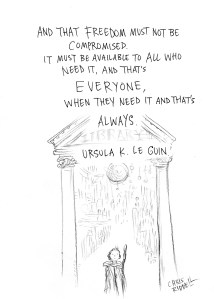 AND THAT FREEDOM MUST NOT BE
COMPROMISED.
IT MUST BE AVAILABLE TO ALL WHO
NEED IT, AND THAT'S
EVERYONE,
WHEN THEY NEED IT AND THAT'S
ALWAYS.
LIBRARY
URSULA K. LE GUIN
CHRIS
RIDDELL